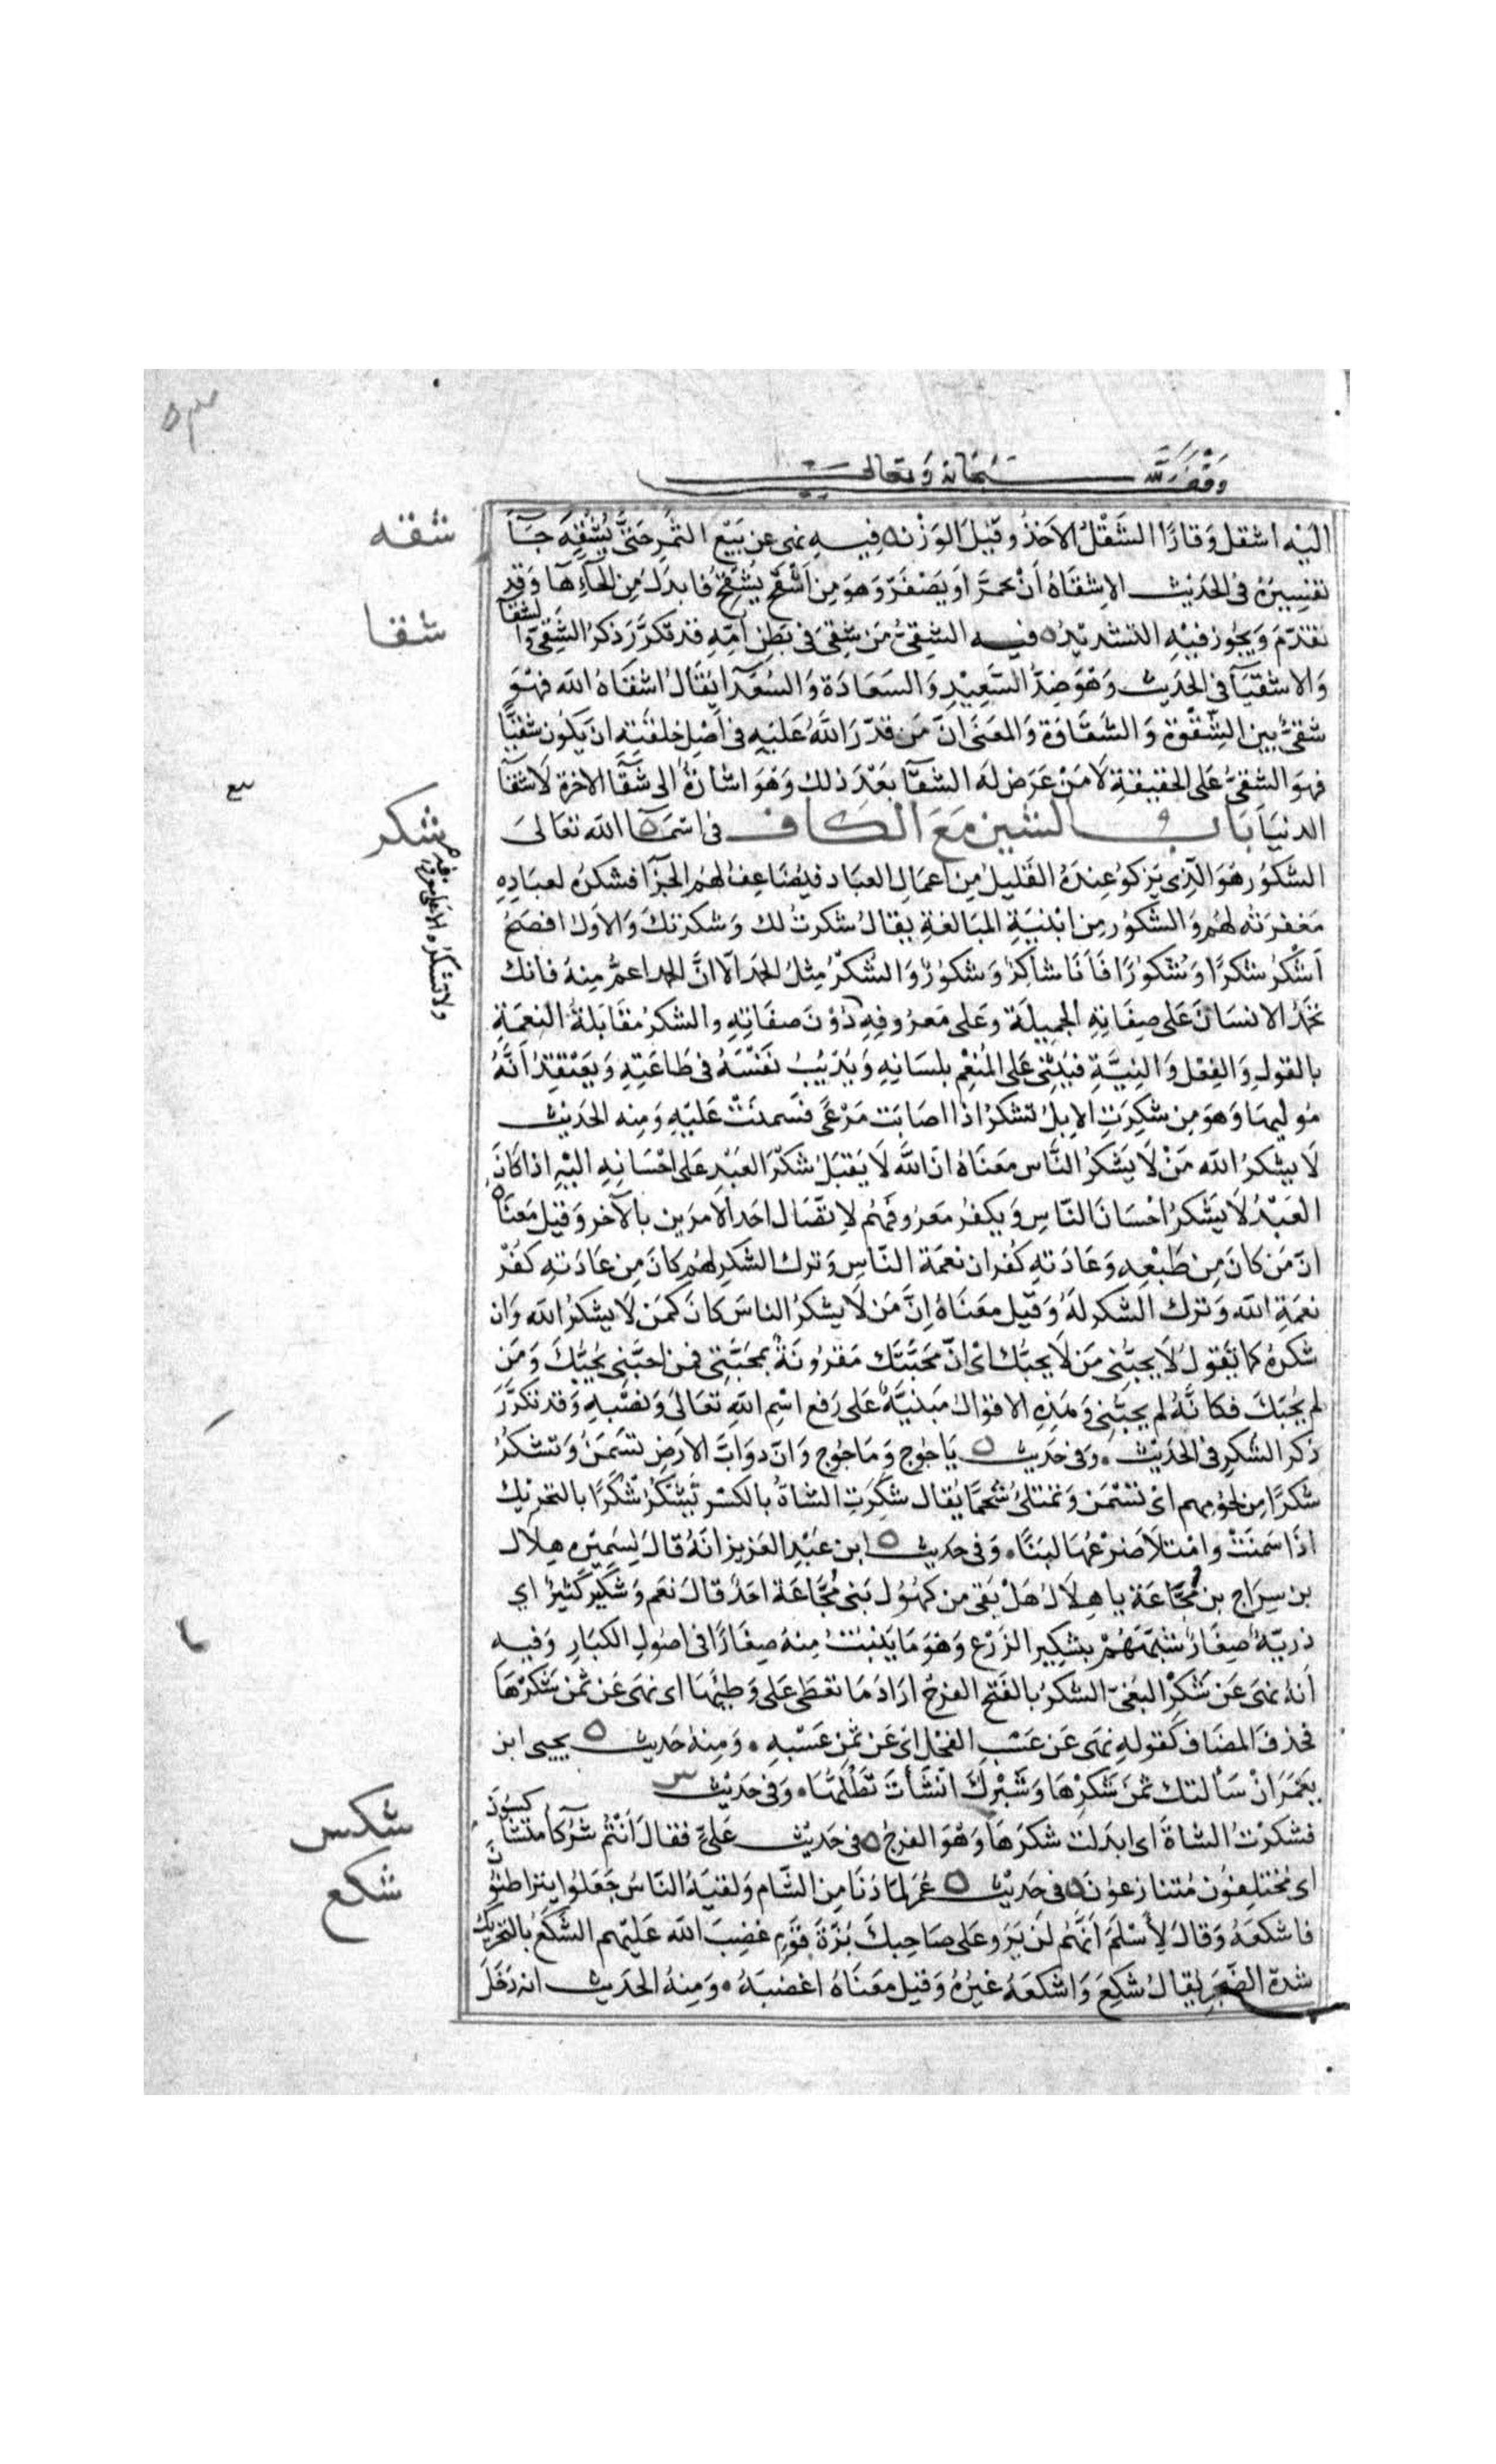 وقف لله سبحانه وتعالى
اليه اشقل وقارا الشقل الاخذ وقيل الوزن ه فيه نهى عن بيع الثمر حتى يشقه جآ
شقه
تفسيره فى الحديث الاشقاه أن يحمر او يصفر وهو من اشقح يشقح فابدل من الحاء ها وقد
تقدم ويجوز فيه التشديد ه فيه الشقى من شقى فى بطن امه قد تكرر ذكر الشقى والشقآ
شقا
والاشقيآ فى الحديث وهو ضد السعيد والسعادة والسعدآ يقال اشقاه الله فهو
شقى بين الشقوة والشقاوة والمعنى ان من قدر الله عليه فى اصل خلقته ان يكون شقيا
فهو الشقى على الحقيقة لا من عرض له الشقآ بعد ذلك وهو اشارة الى شقآ الاخرة لا شقآ
الدنيا باب الشين مع الكاف فى اسمآ الله تعالى
شكر
الشكور هو الذى يزكو عنده القليل من اعمال العباد فيضاعف لهم الجزآ فشكره لعباده
مغفرته لهم والشكور من ابنية المبالغة يقال شكرت لك وشكرتك والاول افصح
اشكر شكرا وشكورا فانا شاكر وشكور والشكر مثل الحمد الا ان الحمد اعم منه فانك
تحمد الانسان على صفاته الجميلة وعلى معروفه ولا تشكره الا على معروفه دون صفاته والشكر مقابلة النعمة
بالقول والفعل والنية فيثنى على المنعم بلسانه ويذيب نفسه فى طاعته ويعتقد انه
موليها وهو من شكرت الابل تشكر اذا اصابت مرعى فسمنت عليه ومنه الحديث
لا يشكر الله من لا يشكر الناس معناه ان الله لا يقبل شكر العبد على احسانه اليه اذا كان
العبد لا يشكر احسان الناس ويكفر معروفهم لاتصال احد الامرين بالآخر وقيل معناه
ان من كان من طبعه وعادته كفران نعمة الناس وترك الشكر لهم كان من عادته كفر
نعمة الله وترك الشكر له وقيل معناه ان من لا يشكر الناس كان كمن لا يشكر الله وان
شكره كما تقول لا يحبنى من لا يحبك اى ان محبتك مقرونة بمحبتى فمن احبنى يحبك ومن
لم يحبك فكانه لم يحبنى وهذه الاقوال مبنية على رفع اسم الله تعالى ونصبه وقد تكرر
ذكر الشكر فى الحديث وفى حديث ه ياجوج وماجوج وان دواب الارض تسمن وتشكر
شكرا من لحومهم اى تسمن وتمتلئ شحما يقال شكرت الشاة بالكسر تشكر شكرا بالتحريك
اذا سمنت وامتلا ضرعها لبنا وفى حديث ه ابن عبد العزيز انه قال لسميره هلال
بن سراج بن مجاعة يا هلال هل بقى من كهول بنى مجاعة احد قال نعم وشكير كثير اى
ذرية صغار شبههم بشكير الزرع وهو ما ينبت منه صغارا فى اصول الكبار وفيه
أنه نهى عن شكر البغى الشكر بالفتح الفرج اراد ما تعطى على وطيها اى نهى عن ثمن شكرها
فحذف المضاف كقوله نهى عن عسب الفحل اى عن ثمن عسبه ومنه حديث ه يحيى ابن
يعمر ان سالتك ثمن شكرها وشبرك انشأت تطلها وفى حديث
فشكرت الشاة اى ابدلت شكرها وهو الفرج ه فى حديث على فقال انتم شركا متشاكسون
شكس
اى مختلفون متنازعون ه فى حديث ه عمر لما دنا من الشام ولقيه الناس جعلوا يتراطنون
شكع
فاشكعه وقال لاسلم انهم لن يروا على صاحبك بزة قوم غضب الله عليهم الشكع بالتحريك
شدة الضجر يقال شكع واشكعه غيره وقيل معناه اغضبه ومنه الحديث انه دخل